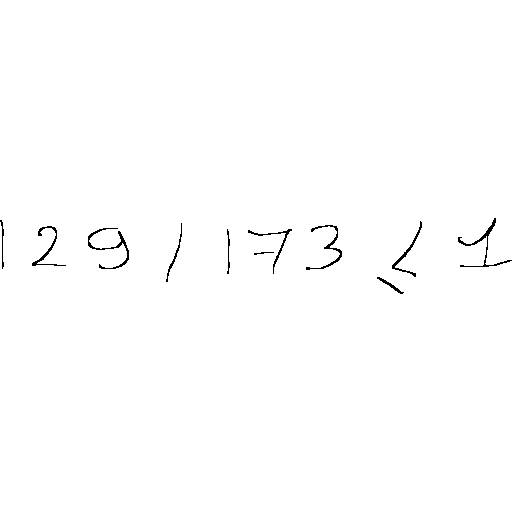 129 / 173 ≤ 1